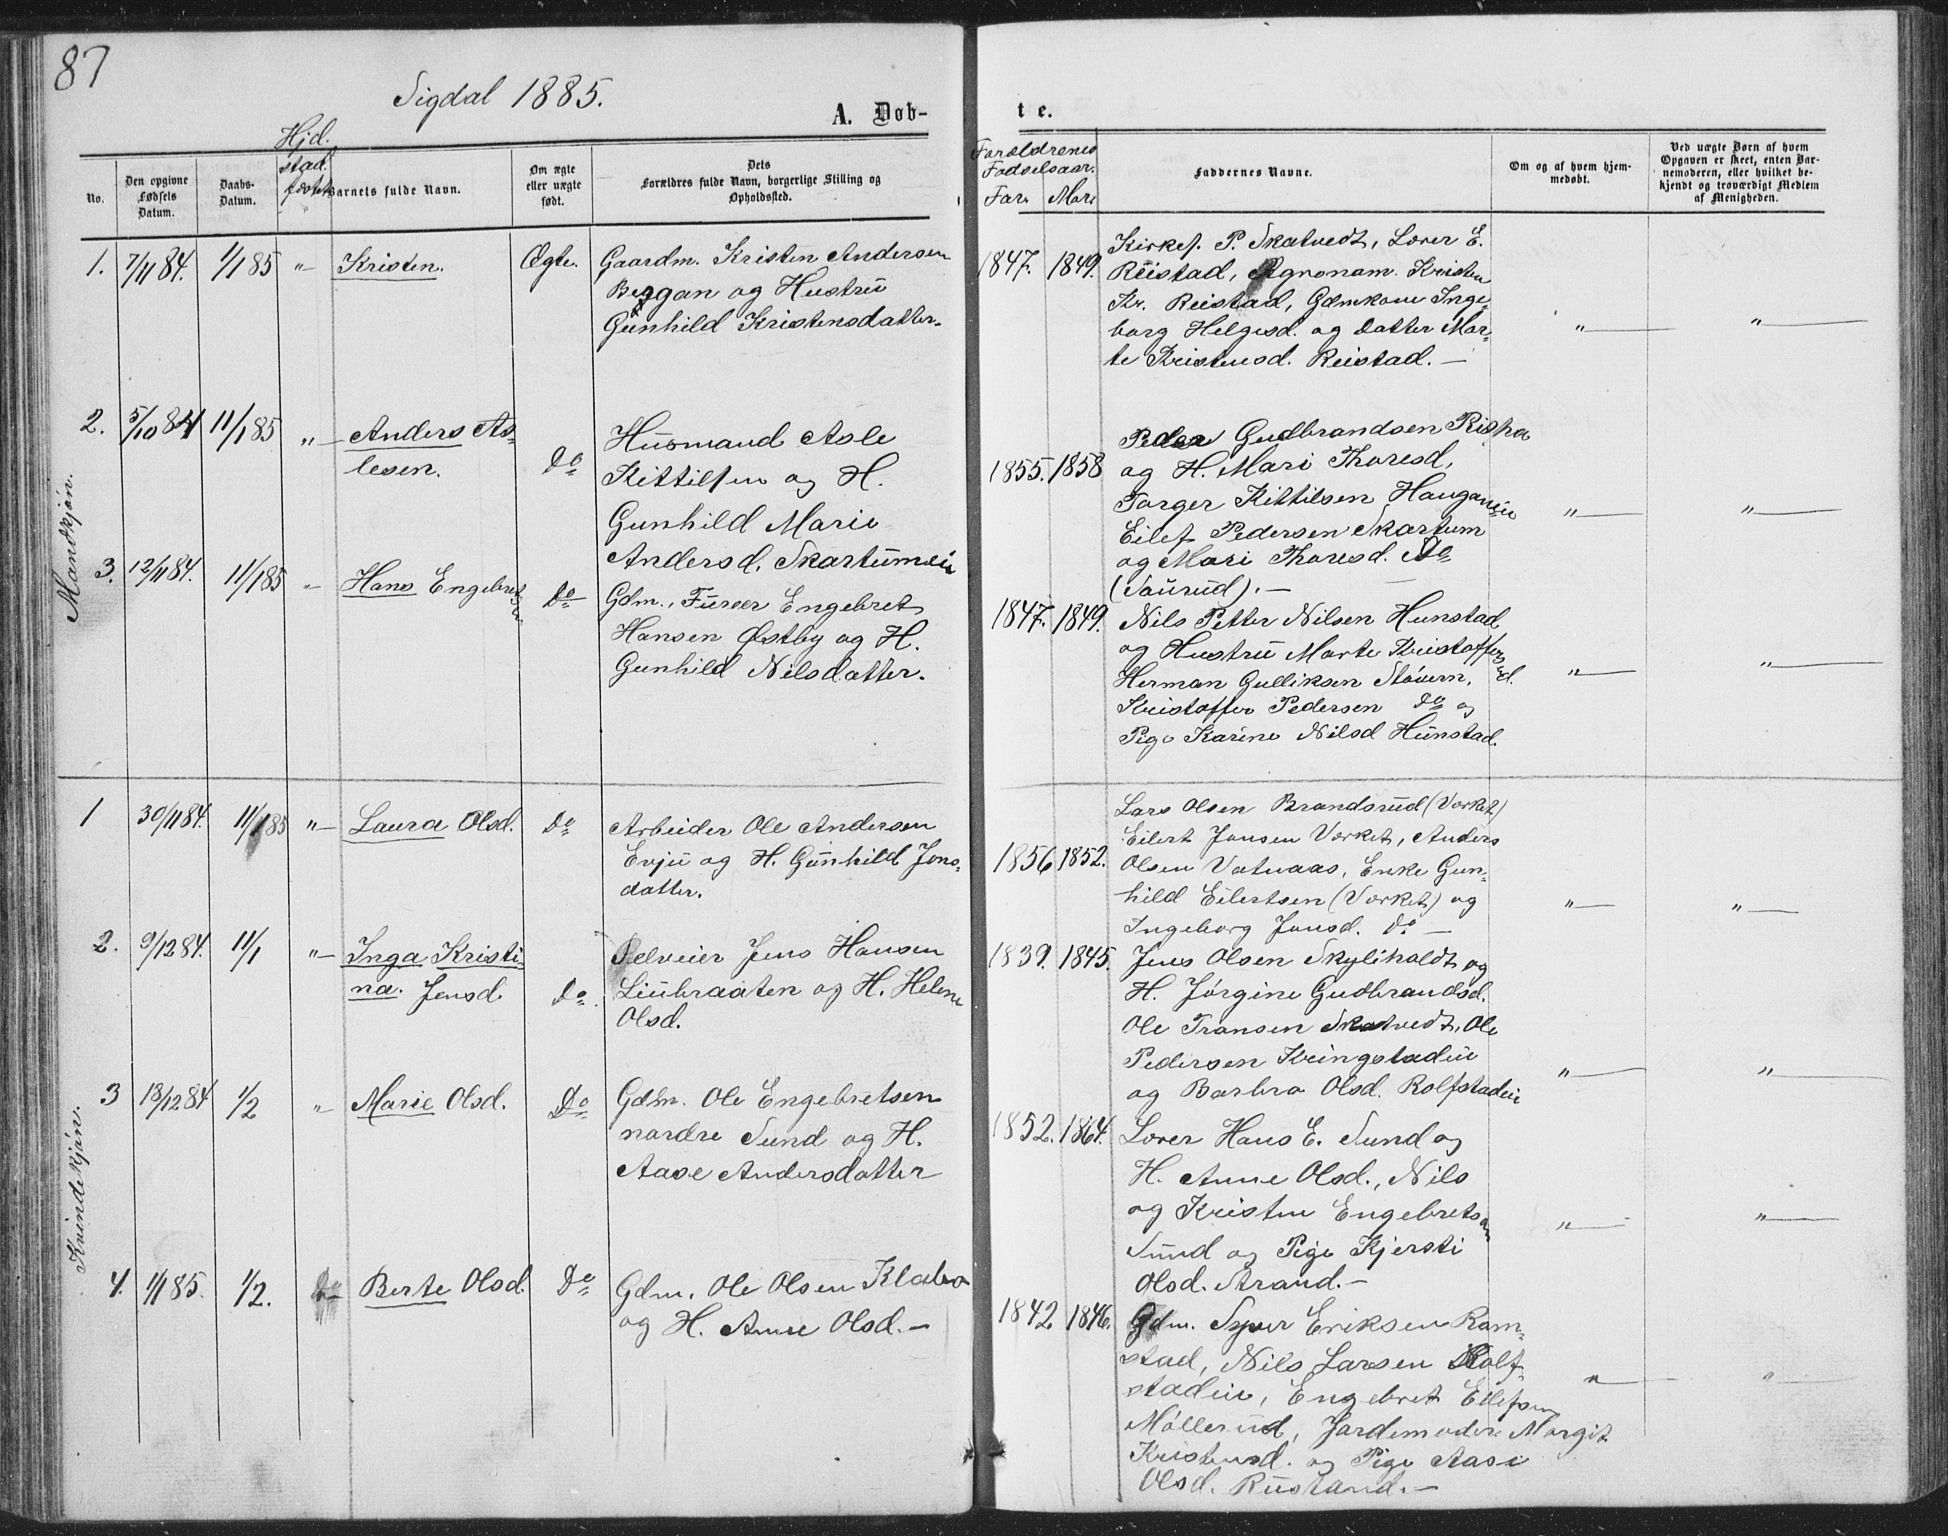 87
Sigdal 1885.
A. Døb-
Hjd.
stad.
No.
Den opgivne Fødsels Datum.
Daabs-Datum.
Barnets fulde Navn.
Om ægte eller uægte født.
Dets
Forældres fulde Navn, borgerlige Stilling og
Opholdssted.
Mandkjøn.
1. 7/11 84. 1/1 85 " Kristen. Ægte. Gaardm. Kristen Andersen
og Hustru
Gunhild Kristensdatter.
2. 5/10 84 11/1 85 " Anders As-
lesen. Do Husmand Asle
Kittilsen og H.
Gunhild Marie
Andersd. Skartumeie
3. 12/11 84. 11/1 85 " Hans Engebretsen Do Gdm., Furer Engebret
Hansen Østby og H.
Gunhild Nilsdatter.
Kvindekjøn.
1 30/11 84. 11/1 85 " Laura Olsd. Do Arbeider Ole Andersen
Evju og H. Gunhild Jons-
datter.
2. 9/12 84. 11/1 " Inga Kristi-
na. Jensd. Do. Selveier Jens Hansen
Liubraaten og H. Helene
Olsd.
3 13/12 84 1/2 " Marie Olsd. Do Gdm. Ole Engebretsen
nordre Sund og H.
Aase Andersdatter
4. 1/1 85. 1/2. Do Berte Olsd. Do Gdm. Ole Olsen
og H. Anne Olsd. —
t e.
Forældrenes
Fødselsaar.
Far. Mor.
Faddernes Navne.
Om og af hvem hjem-
medøbt.
Ved uægte Børn af hvem
Opgaven er skeet, enten Bar-
nemoderen, eller hvilket be-
kjendt og troværdigt Medlem
af Menigheden.
1847. 1849. Kirkes. P. Skatvedt, Lærer E.
Reistad, Agronom. Kristen
Kr. Reistad, Gdmkone Inge-
borg Helgesd. og Datter Mar-
te Kristensd. Reistad. —
" "
1855. 1858 Peder Gudbrandsen
og H. Mari Thoresd,
Torger Kittilsen Hauganeie
Eilef Pedersen Skartum
og Mari Thoresd. Do
(Saurud). —
" "
1847. 1849. Nils Petter Nilsen Hunstad
og Hustru Marte Kristoffersd.
Herman Gulliksen Støvern,
Kristoffer Pedersen Do og
Pige Karine Nilsd Hunstad.
" "
1856 1852. Lars Olsen Brandsrud (Værket)
Eilert Jonsen Værket, Anders
Olsen Vatnaas, Enke Gun-
hild Eilertsen (Værket) og
Ingeborg Jonsd. Do —
" "
1839. 1845. Jens Olsen Skyliholdt og
H. Jørgine Gudbrandsd.
Ole Fransen Skatvedt, Ole
Pedersen Kringstadeie
og Barbro Olsd. Rolfstadeie
" "
1852. 1864. Lærer Hans E. Sund og
H. Anne Olsd., Nils
og Kristen Engebretsen
Sund og Pige Kjersti
Olsd. Strand. —
" "
1842 1846. Gdm. Syver Eriksen Ram-
stad, Nils Larsen Rolf-
stadeie, Engebret Eilefsen
Møllerud, Jordemoder Margit
Kristensd. og Pige Aase
Olsd. Rustand. —
" "